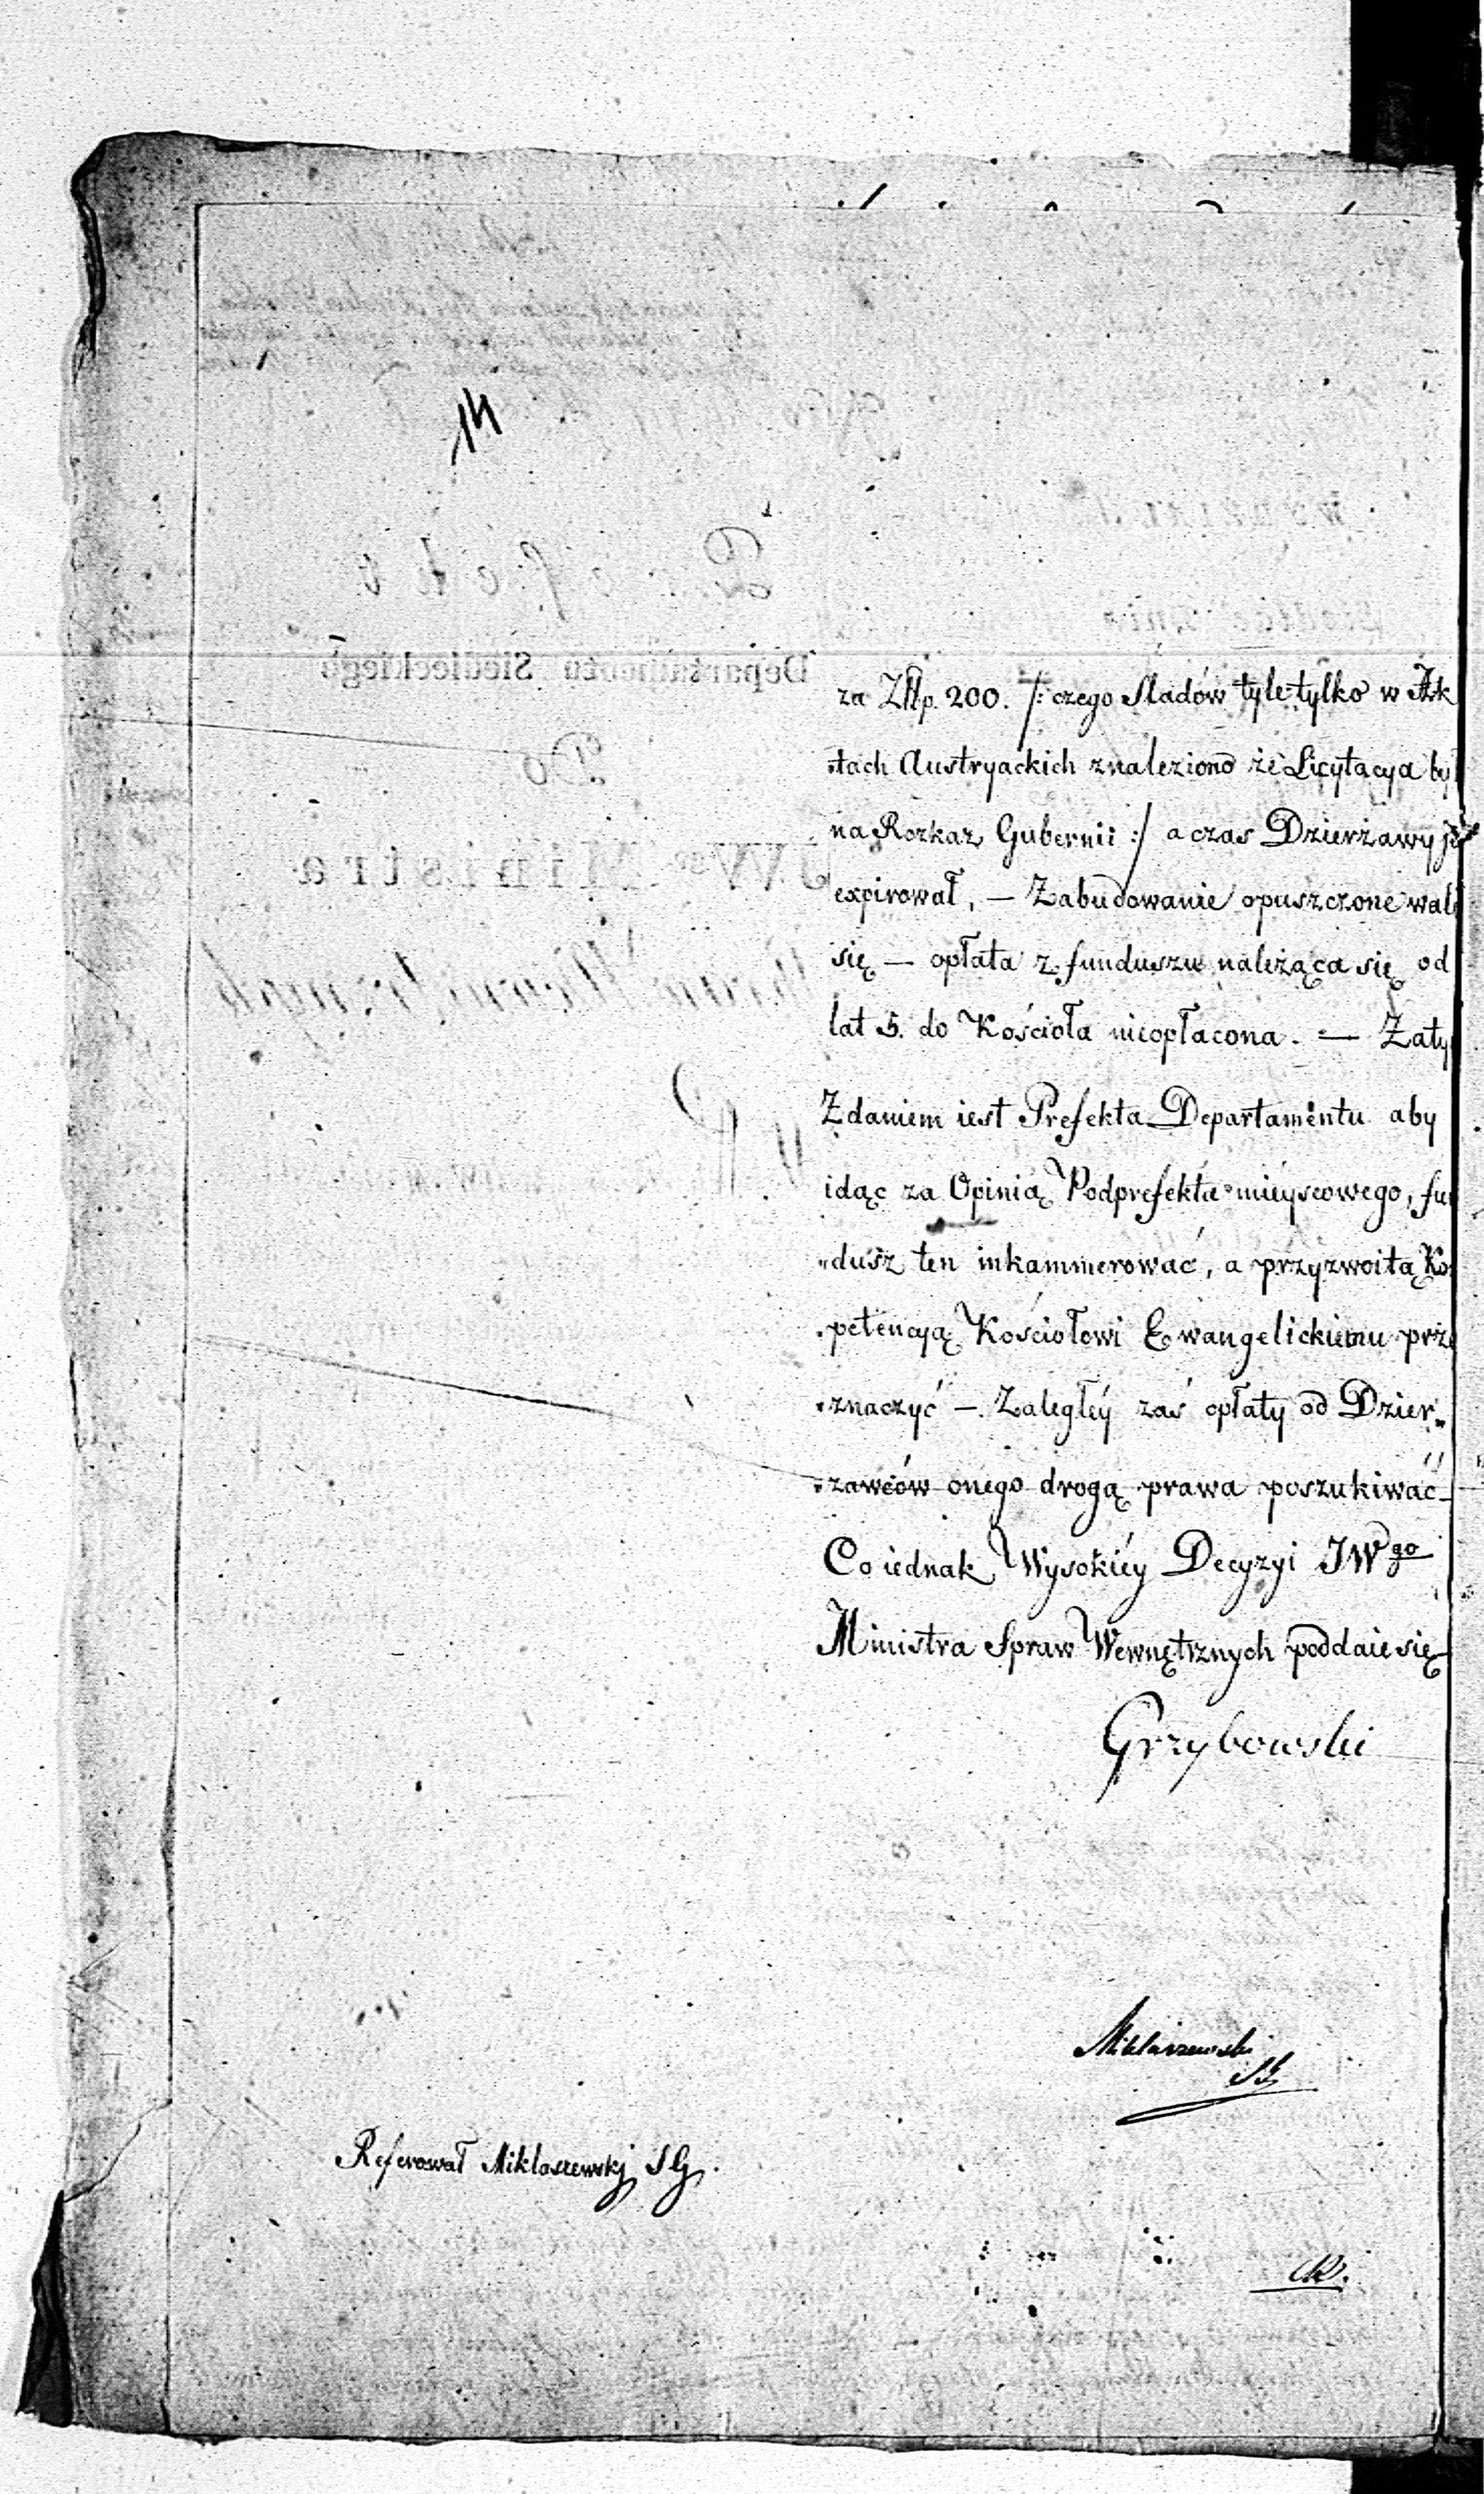 14
za Złłp. 200. /: czego Sladów tyle tylko w Ak
tach Austryackich znaleziono że Licytacya by
na Rozkaz Gubernii :/ a czas Dzierżawy
expirował, — Zabudowanie opuszczone wali
się — opłata z funduszu należąca się od
lat 5. do Kościoła nieopłacona. — Zaty
Zdaniem iest Prefekta Departamentu aby
idąc za Opinią Podprefekta mieyscowego, fun
„dusz ten inkammerować, a przyzwoitą Ko
„petencyą Kościołowi Ewangelickiemu prze
„znaczyć —. Zaległéy zaś opłaty od Dzier„
„zawców onego drogą prawa poszukiwać —
Co iednak Wysokiéy Decyzyi JWgo
Ministra Spraw Wewnętrznych poddaie się
Grzybowski
Miklaszewski
SG
Referował Miklaszewski SG.